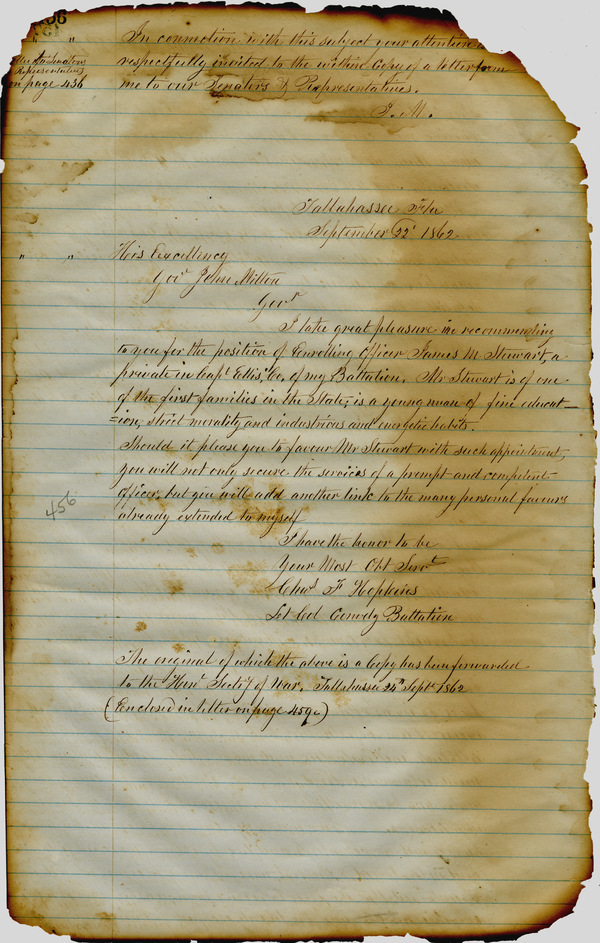 In connection with this subject your attention
respectfully invited to the within Copy of a letter from
me to our Senators & Representatives.
Representatives
on page 436
J. M.
Tallahassee Fla
September 22d 1862
" "
His Excellency
Govr John Milton
Govr
I take great pleasure in recommending
to you for the position of Enrolling Officer James M. Stewart, a
private in Capt Ellis, Co, of my Battalion. Mr Stewart is of one
of the first families in the State; is a young man of fine educat=
=ion, strict morality and industrious and energetic habits.
Should it please you to favour Mr Stewart with such appointment,
you will not only secure the services of a prompt and competent
officer, but you will add another link to the many personal favours
already extended to myself
456
I have the honor to be
Your Most Obt Servt
Chas F Hopkins
Lt Col Comdg Battalion
The original of which the above is a Copy has been forwarded
to the Honl Secty of War. Tallahassee 24th Sept 1862
(Enclosed in letter on page 459.)